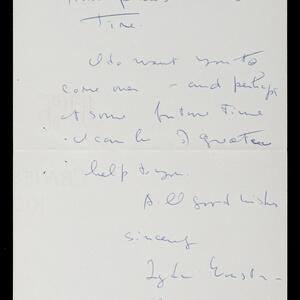 Time.
I do want you to
come over - and perhaps
at some future time
I can be of greater
help to you.
All good wishes
sincerely